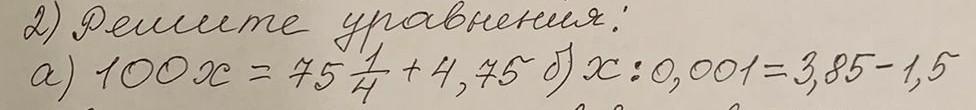 2) Решите уравнения:
а) 100x = 75 1/4 + 4,75 б) x : 0,001 = 3,85 - 1,5